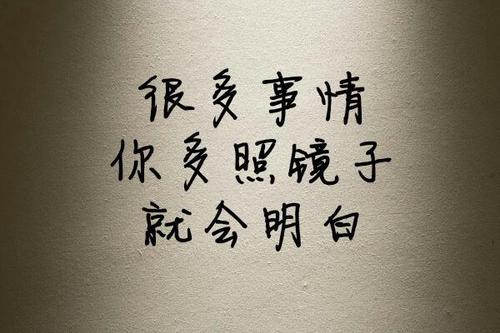 很多事情
你多照镜子
就会明白